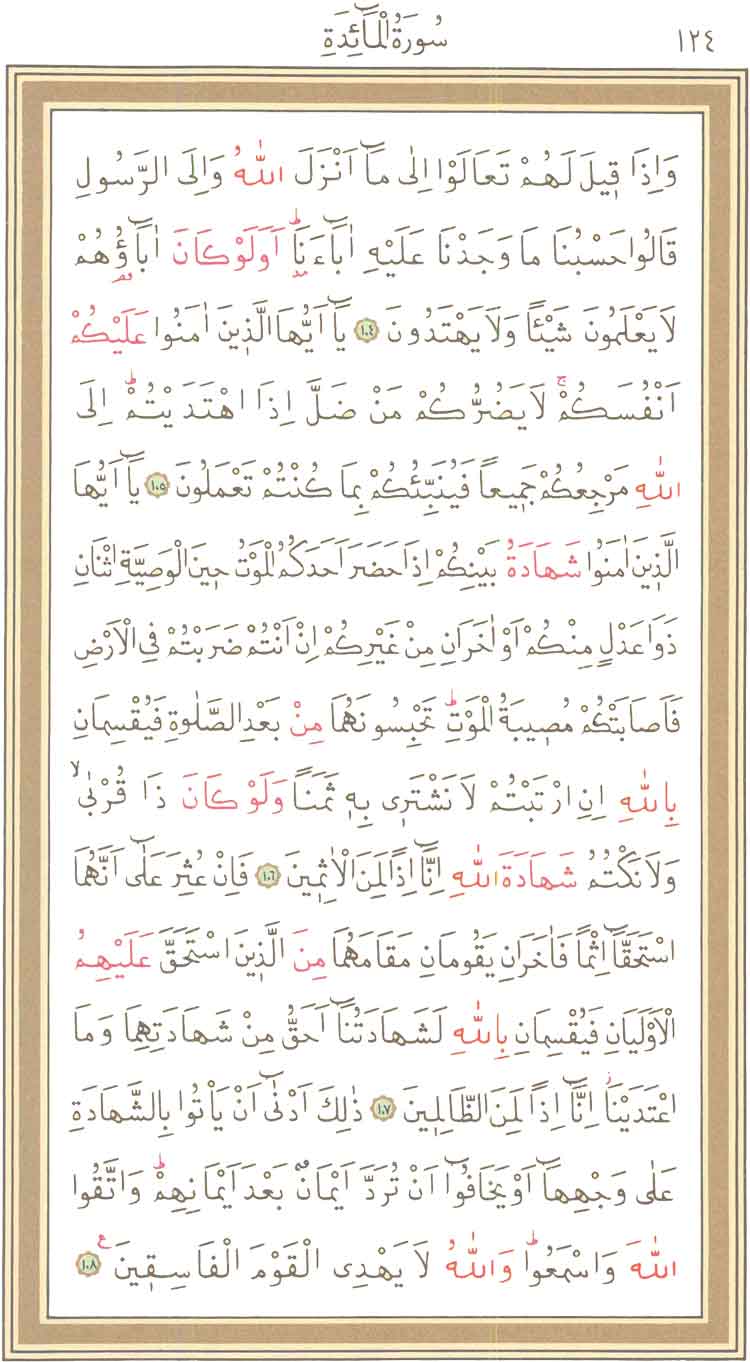 سُورَةُ الْمَٓائِدَةِ ١٢٤
وَاِذَا ق۪يلَ لَهُمْ تَعَالَوْا اِلٰى مَٓا اَنْزَلَ اللّٰهُ وَاِلَى الرَّسُولِ
قَالُوا حَسْبُنَا مَا وَجَدْنَا عَلَيْهِ اٰبَٓاءَنَاۜ اَوَلَوْ كَانَ اٰبَٓاؤُ۬هُمْ
لَا يَعْلَمُونَ شَيْـٔاً وَلَا يَهْتَدُونَ ﴿١٠٤﴾ يَٓا اَيُّهَا الَّذ۪ينَ اٰمَنُوا عَلَيْكُمْ
اَنْفُسَكُمْۚ لَا يَضُرُّكُمْ مَنْ ضَلَّ اِذَا اهْتَدَيْتُمْۜ اِلَى
اللّٰهِ مَرْجِعُكُمْ جَم۪يعاً فَيُنَبِّئُكُمْ بِمَا كُنْتُمْ تَعْمَلُونَ ﴿١٠٥﴾ يَٓا اَيُّهَا
الَّذ۪ينَ اٰمَنُوا شَهَادَةُ بَيْنِكُمْ اِذَا حَضَرَ اَحَدَكُمُ الْمَوْتُ ح۪ينَ الْوَصِيَّةِ اثْنَانِ
ذَوَا عَدْلٍ مِنْكُمْ اَوْ اٰخَرَانِ مِنْ غَيْرِكُمْ اِنْ اَنْتُمْ ضَرَبْتُمْ فِي الْاَرْضِ
فَاَصَابَتْكُمْ مُص۪يبَةُ الْمَوْتِۜ تَحْبِسُونَهُمَا مِنْ بَعْدِ الصَّلٰوةِ فَيُقْسِمَانِ
بِاللّٰهِ اِنِ ارْتَبْتُمْ لَا نَشْتَر۪ي بِه۪ ثَمَناً وَلَوْ كَانَ ذَا قُرْبٰىۙ
وَلَا نَكْتُمُ شَهَادَةَ اللّٰهِ اِنَّٓا اِذاً لَمِنَ الْاٰثِم۪ينَ ﴿١٠٦﴾ فَاِنْ عُثِرَ عَلٰٓى اَنَّهُمَا
اسْتَحَقَّٓا اِثْماً فَاٰخَرَانِ يَقُومَانِ مَقَامَهُمَا مِنَ الَّذ۪ينَ اسْتَحَقَّ عَلَيْهِمُ
الْاَوْلَيَانِ فَيُقْسِمَانِ بِاللّٰهِ لَشَهَادَتُنَٓا اَحَقُّ مِنْ شَهَادَتِهِمَا وَمَا
اعْتَدَيْنَاۘ اِنَّٓا اِذاً لَمِنَ الظَّالِم۪ينَ ﴿١٠٧﴾ ذٰلِكَ اَدْنٰٓى اَنْ يَأْتُوا بِالشَّهَادَةِ
عَلٰى وَجْهِهَٓا اَوْ يَخَافُٓوا اَنْ تُرَدَّ اَيْمَانٌ بَعْدَ اَيْمَانِهِمْۜ وَاتَّقُوا
اللّٰهَ وَاسْمَعُواۜ وَاللّٰهُ لَا يَهْدِي الْقَوْمَ الْفَاسِق۪ينَ۟ ﴿١٠٨﴾ ع